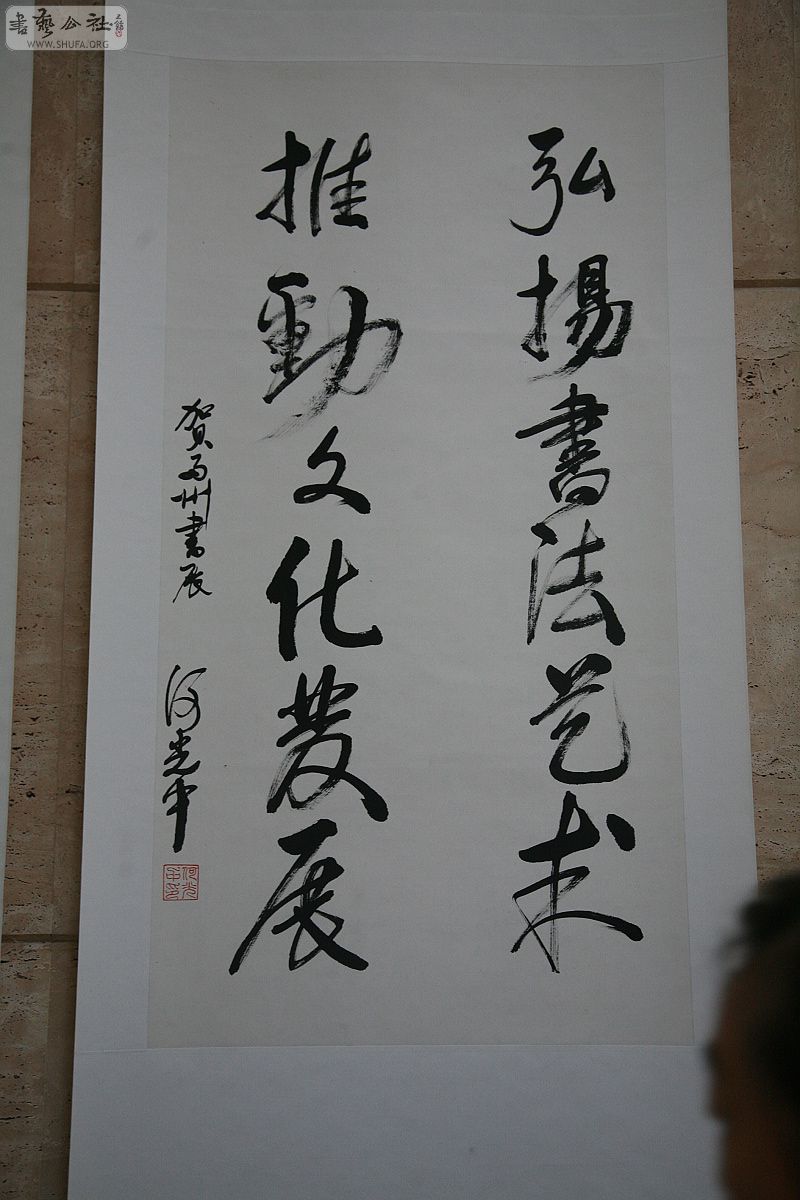 弘揚書法艺术
推動文化發展
贺五州書展
何光
書藝公社
WWW.SHUFA.ORG